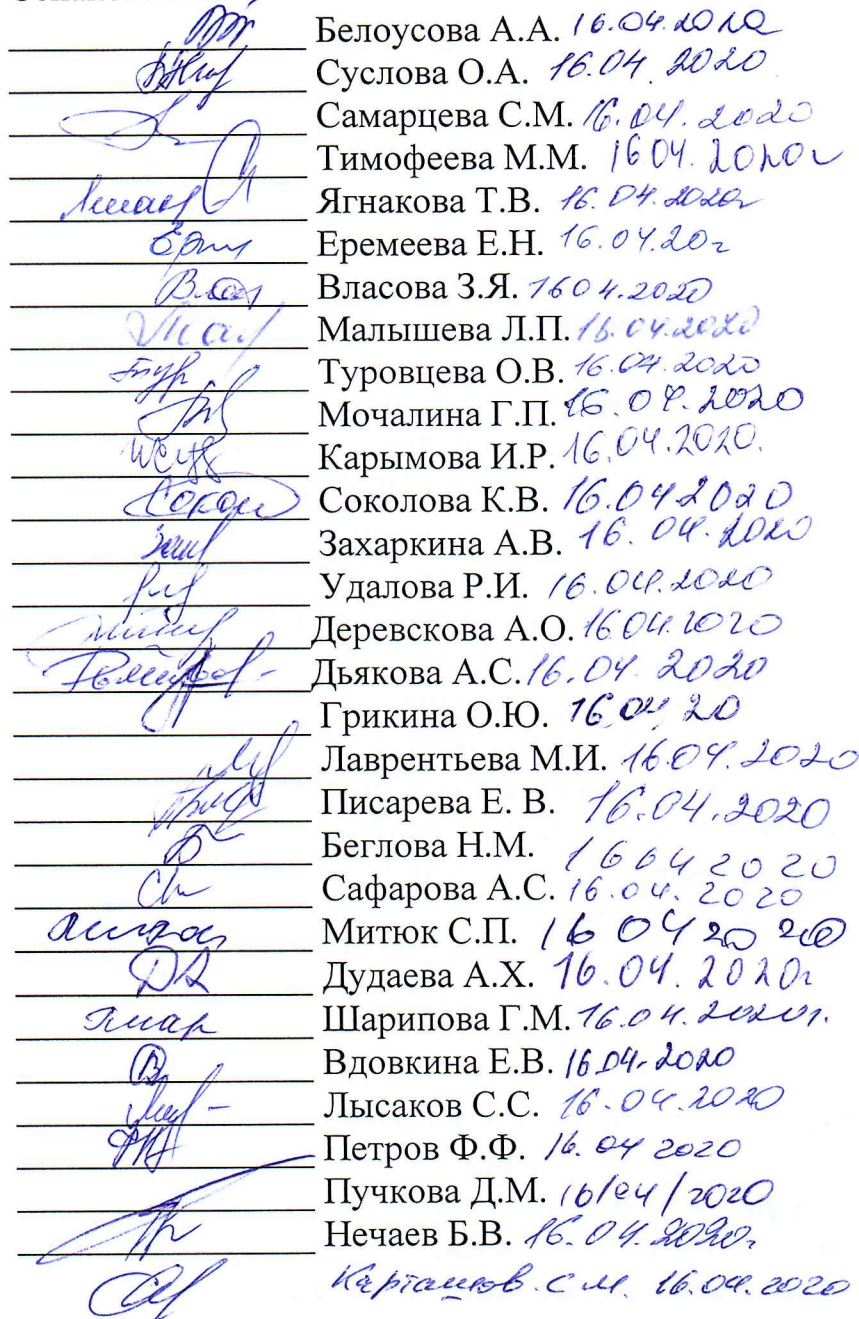 Белоусова А.А. 16.04.2020
Суслова О.А. 16.04.2020
Самарцева С.М. 16.04.2020
Тимофеева М.М. 16 04. 2020г
Ягнакова Т.В. 16.04.2020г
Еремеева Е.Н. 16.04.20г
Власова З.Я. 16 04.2020
Малышева Л.П. 16.04.2020
Туровцева О.В. 16.04.2020
Мочалина Г.П. 16.04.2020
Карымова И.Р. 16.04.2020.
Соколова К.В. 16.04 2020
Захаркина А.В. 16.04.2020
Удалова Р.И. 16.04.2020
Деревскова А.О. 16.04.2020
Дьякова А.С. 16.04.2020
Грикина О.Ю. 16 04 20
Лаврентьева М.И. 16.04.2020
Писарева Е. В. 16.04.2020
Беглова Н.М. 16 04 2020
Сафарова А.С. 16.04.2020
Митюк С.П. 16 04 2020
Дудаева А.Х. 16.04.2020г
Шарипова Г.М. 16.04.2020г.
Вдовкина Е.В. 16.04.2020
Лысаков С.С. 16.04.2020
Петров Ф.Ф. 16.04 2020
Пучкова Д.М. 16/04/2020
Нечаев Б.В. 16.04.2020г
Карташов С М. 16.04.2020